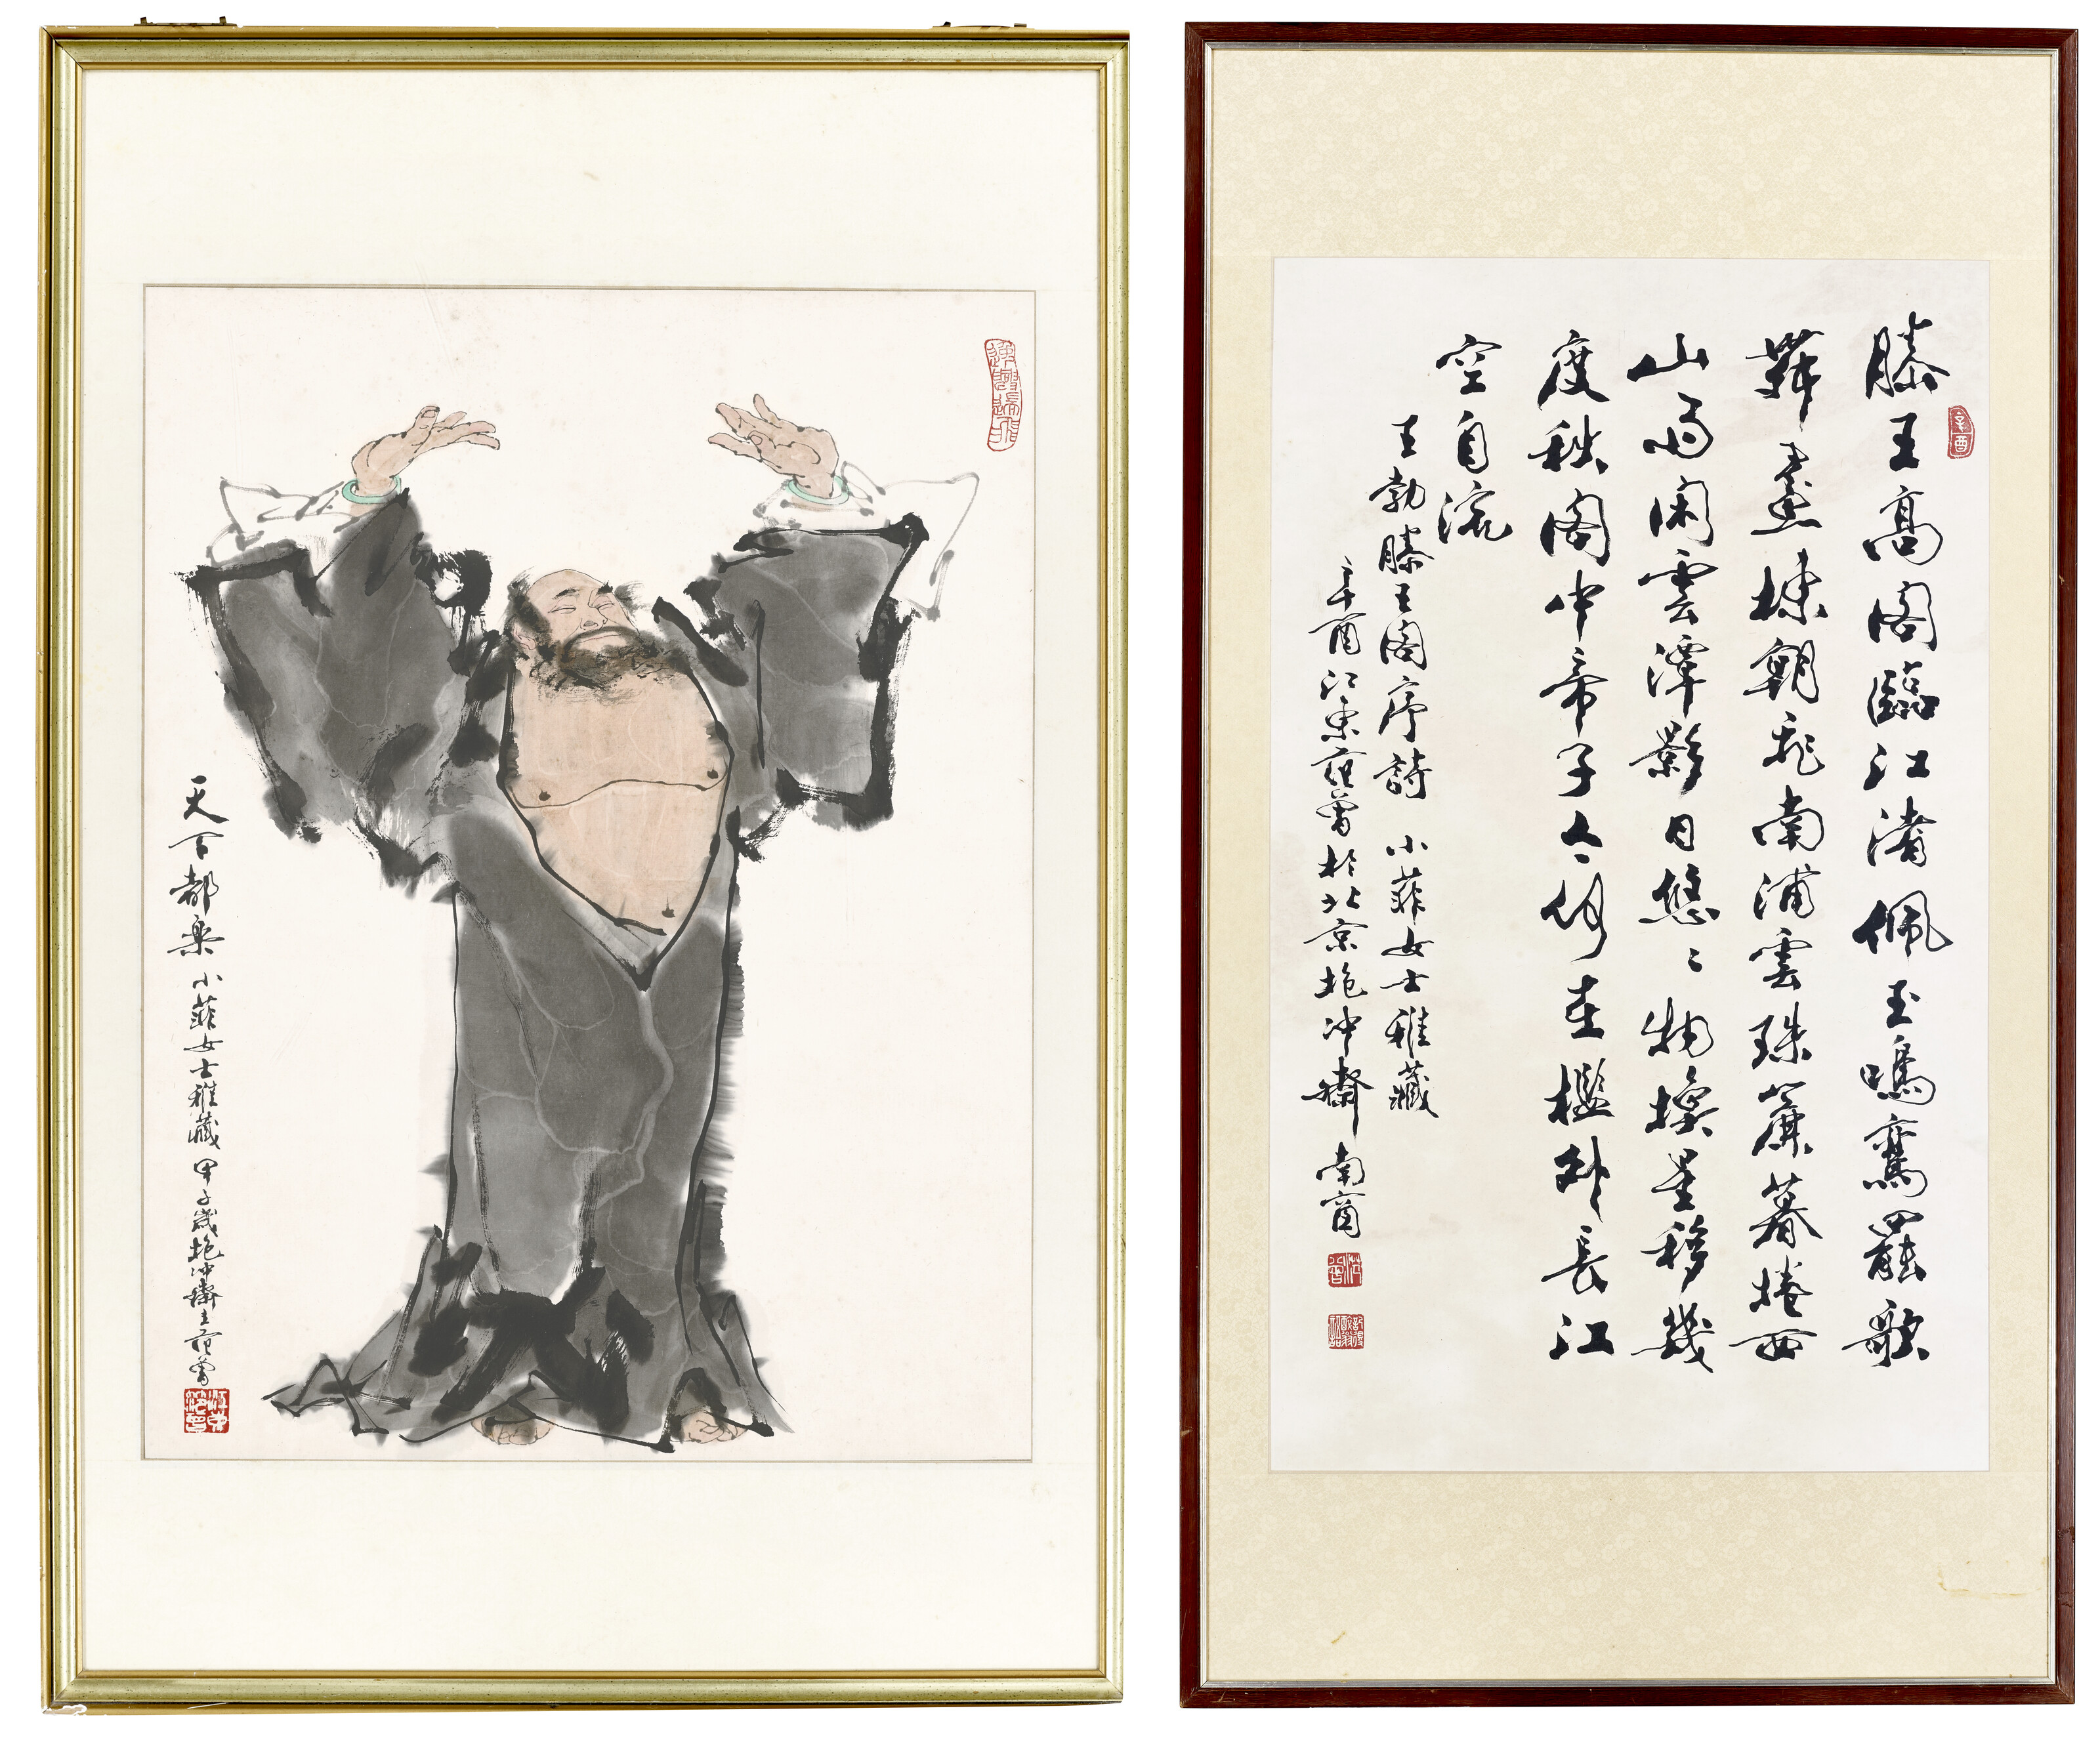 天下都樂 小菲女士雅藏 甲子歲抱沖齋主范曾
滕王高閣臨江渚佩玉鳴鸞罷歌
舞畫棟朝飛南浦雲珠簾暮捲西
山雨閑雲潭影日悠〻物換星移幾
度秋閣中帝子今何在檻外長江
空自流
王勃滕王閣序詩 小菲女士雅藏
辛酉江東范曾於北京抱沖齋
辛酉